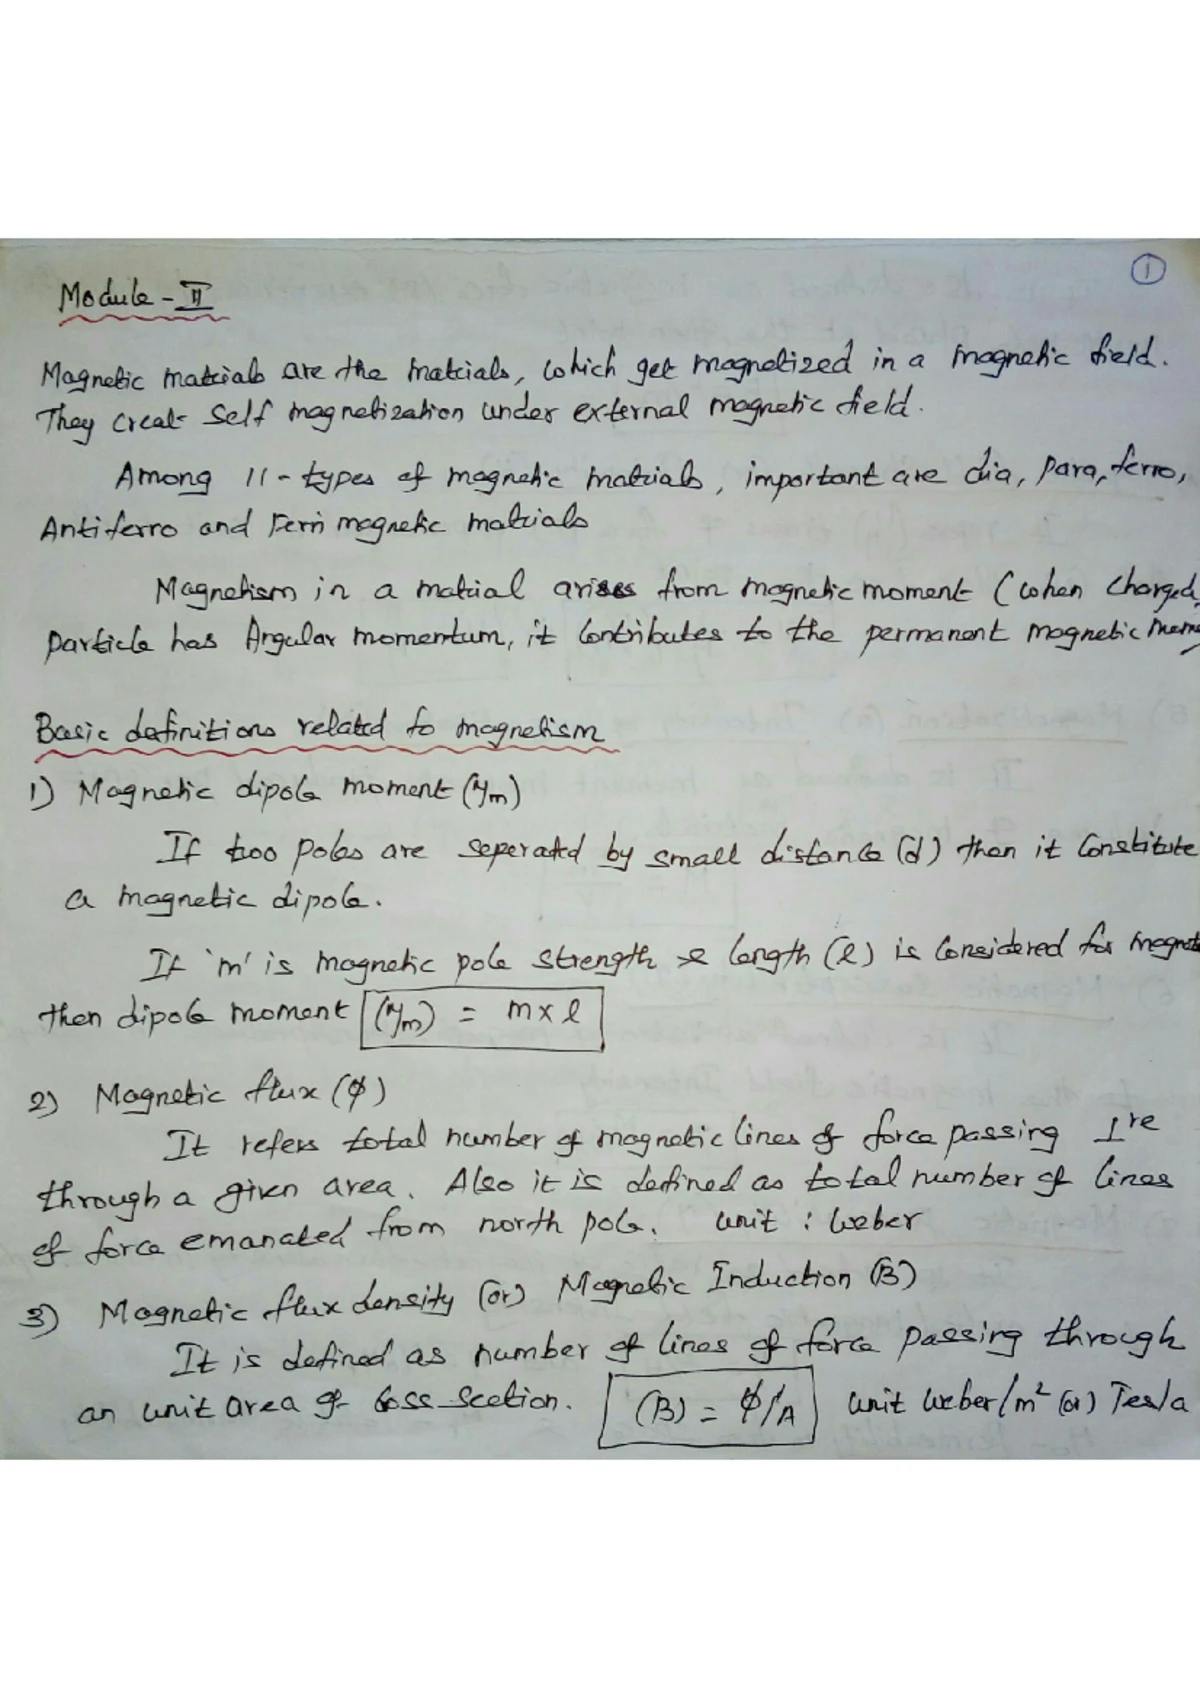 1
Module - II
Magnetic materials are the materials, which get magnetized in a magnetic field.
They creat self magnetization under external magnetic field.
Among 11-types of magnetic materials, important are dia, para, ferro,
Antiferro and Ferri magnetic materials
Magnetism in a material arises from magnetic moment (when charged
particle has Angular momentum, it contributes to the permanent magnetic
Basic definitions related to magnetism
1) Magnetic dipole moment (μm)
If two poles are seperated by small distance (d) then it constitute
a magnetic dipole.
If 'm' is magnetic pole strength & length (l) is considered for
then dipole moment (μm) = m x l
2) Magnetic flux (ϕ)
It refers total number of magnetic lines of force passing ⊥re
through a given area. Also it is defined as total number of lines
of force emanated from north pole. unit : Weber
3) Magnetic flux density (or) Magnetic Induction (B)
It is defined as number of lines of force passing through
an unit area of coss section. (B) = ϕ/A unit weber/m² (or) Tesla